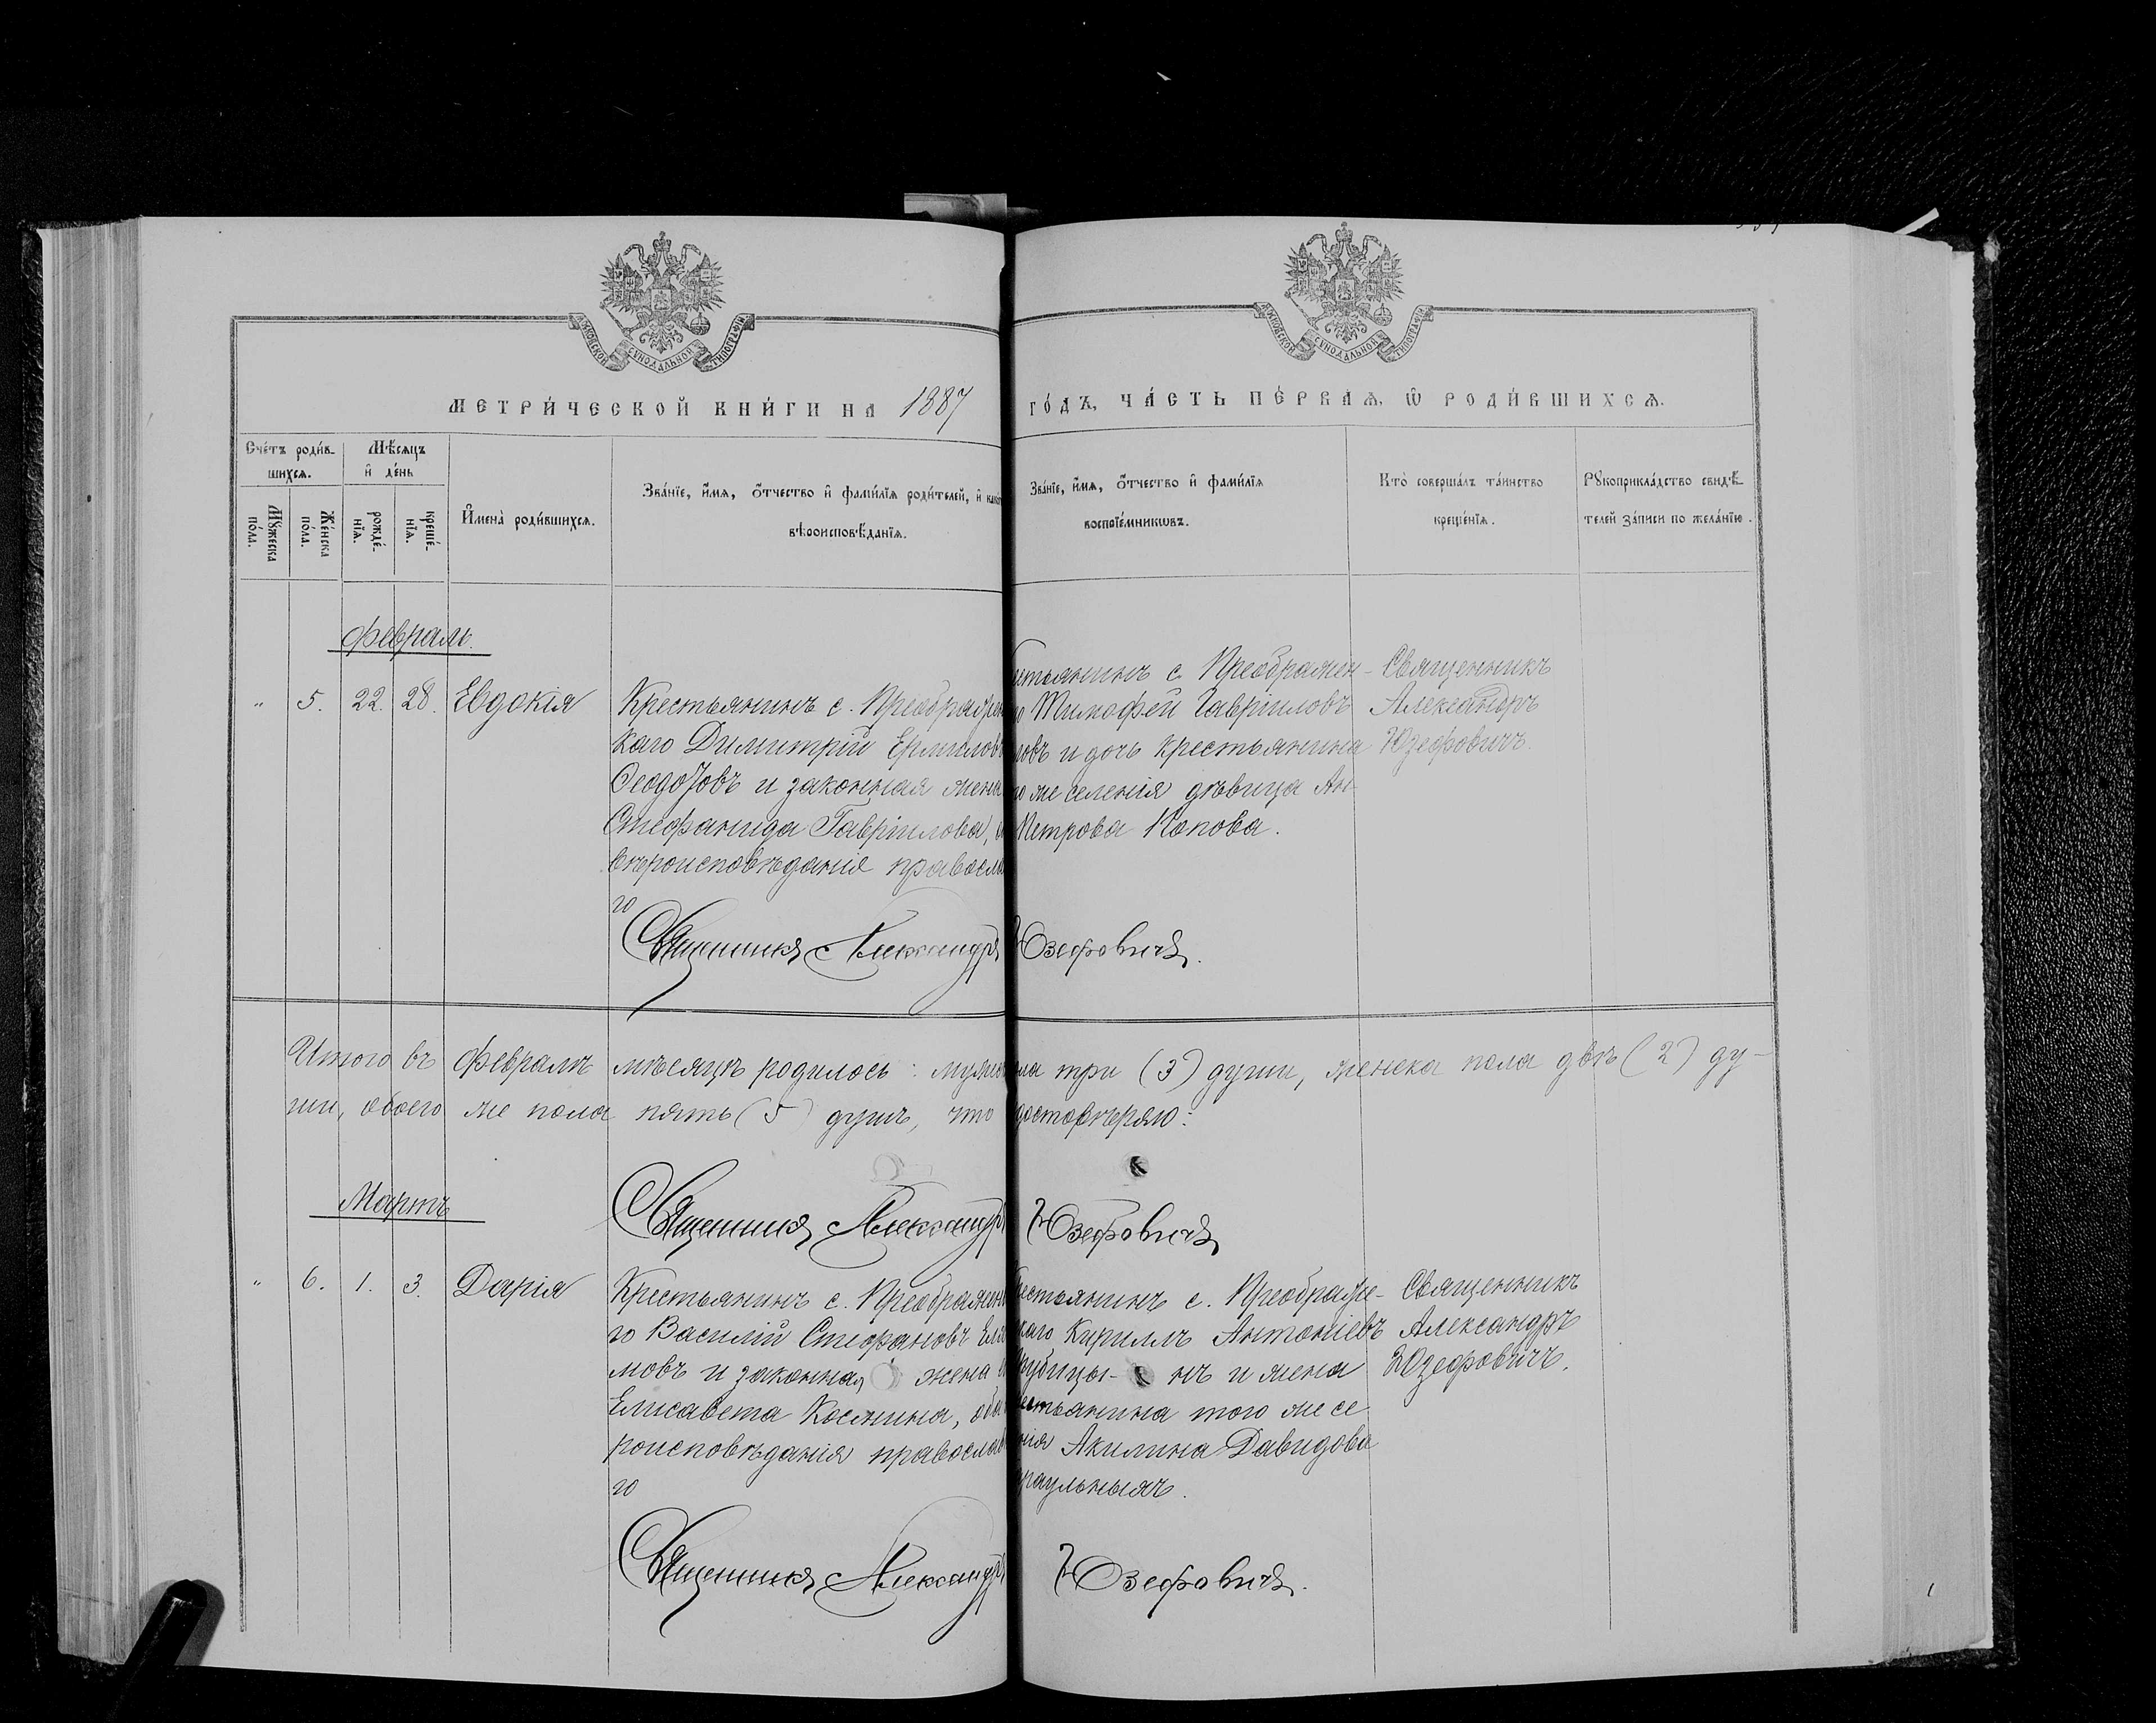 МЕТРИ́ЧЕСКОЙ КНИ́ГИ НА 1887 ГО́ДЪ, ЧА́СТЬ ПЕ́РВАѦ, Ѡ РОДИ́ВШИХСѦ.
МОСКОВСКОЙ СѴНОДАЛЬНОЙ ТИПОГРАФІИ
МОСКОВСКОЙ СѴНОДАЛЬНОЙ ТИПОГРАФІИ
Сче́тъ роди́в-
шихсѧ.
Мꙋ́жеска
по́ла.
Же́нска
по́ла.
Мѣ́сѧцъ
и҆ де́нь
рожде́-
нїѧ.
креще́-
нїѧ.
И҆мена̀ роди́вшихсѧ.
Зва́нїе, и҆́мѧ, ѻ҆́тчество и҆ фами́лїѧ роди́телей, и҆
вѣроисповѣ́данїѧ.
Зва́нїе, и҆́мѧ, ѻ҆́тчество и҆ фами́лїѧ
воспрїе́мникѡвъ.
Кто̀ соверша́лъ та́инство
креще́нїѧ.
Рꙋкоприкла́дство свидѣ́-
телей за́писи по жела́нїю.
Февраль.
" 5. 22. 28. Евдокія
Крестьянинъ с. Преображен
каго Димитрій Ермилов
Ѳеодотовъ и законная жена
Стефанида Гавріилова,
вѣроисповѣданія правосла
го
стьянинъ с. Преображен-
Тимофей Гавріиловъ
ловъ и дочь крестьянина
же селенія дѣвица Ан-
Петрова Попова.
Священникъ
Александръ
Юзефовичъ.
Священникъ Александръ Юзефовичъ.
Итого въ Февралѣ мѣсяцѣ родилось: мужс ла три (3) души, женска пола двѣ (2) ду-
ши, обоего же пола пять (5) душъ, что достовѣряю:
Священникъ Александръ Юзефовичъ
Мартъ
" 6. 1. 3. Дарія
Крестьянинъ с. Преображен
го Василій Стефановъ
мовъ и законная жена
Елисавета Космина, обо
роисповѣданія православ
го
рестьянинъ с. Преображе-
каго Кириллъ Антоніевъ
нъ и жена
естьянина того же се
нія Акилина Давидова
раульныхъ.
Священникъ
Александръ
Юзефовичъ.
Священникъ Александръ Юзефовичъ.